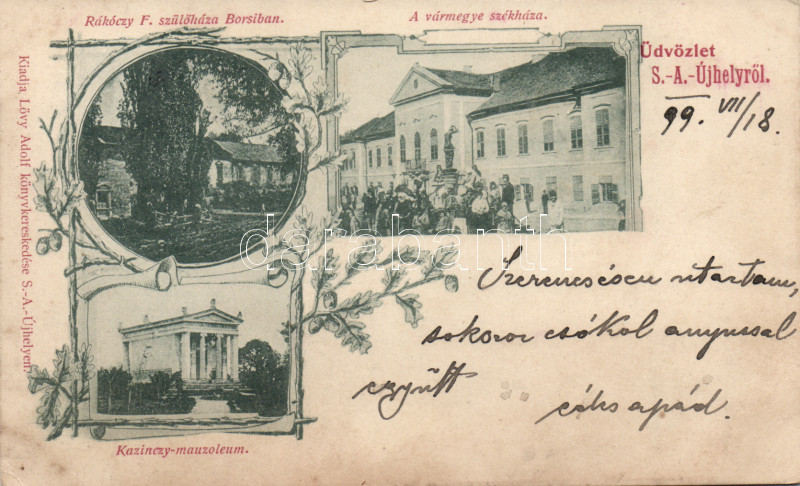 Rákóczy F. szülőháza Borsiban.
A vármegye székháza.
Üdvözlet
S.-A.-Újhelyről.
99. VII/18.
Kiadja Lövy Adolf könyvkereskedése S.-A.-Újhelyen.
darabanth
Szerencsésen utaztam,
sokszor csókol anyussal
együtt
Kazinczy-mauzoleum.